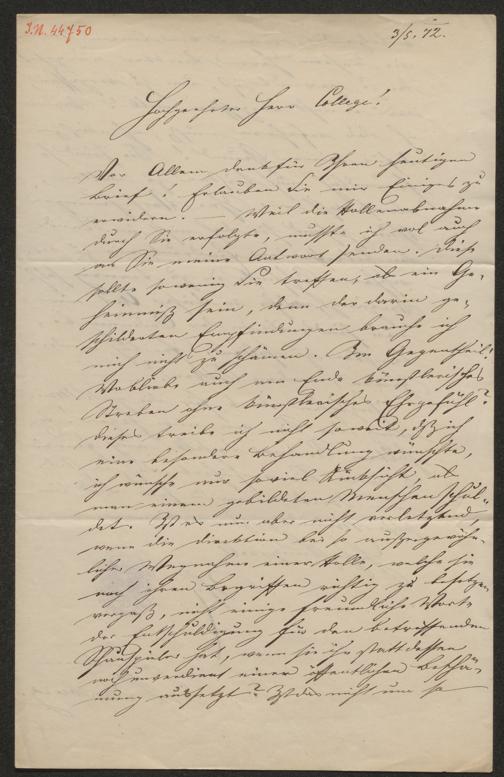 I.N. 44750
3/5. 72.
Hochgeehrter Herr College!
Vor Allem dank für Ihren heutigen
Brief! Erlauben Sie mir Einiges zu
erwidern. — Weil die Rollenabnahme
durch Sie erfolgte, mußte ich wol auch
an Sie meine Antwort senden. Diese
sollte sowenig Sie treffen, als ein Ge-
heimniß sein, denn der darin ge-
schilderten Empfindungen brauche ich
mich nicht zu schämen. Im Gegentheil!
Wo bliebe auch am Ende künstlerisches
Streben ohne künstlerisches Ehrgefühl?
dieses treibe ich nicht soweit, daß ich
eine besondere Behandlung wünschte,
ich wünsche nur soviel Rücksicht als
man einem gebildeten Menschen schul-
det. Ist es nun aber nicht verletzend,
wenn die Direktion bei so außergewöhn-
licher Wegnahme einer Rolle, welche sie
nach ihren Begriffen richtig zu besetzen
vergaß, nicht einige freundliche Worte
der Entschuldigung für den betreffenden
Schauspieler hat, wenn sie ihn statt dessen
noch unverdient einer öffentlichen Beschä-
mung aussetzt? Ist das nicht um so